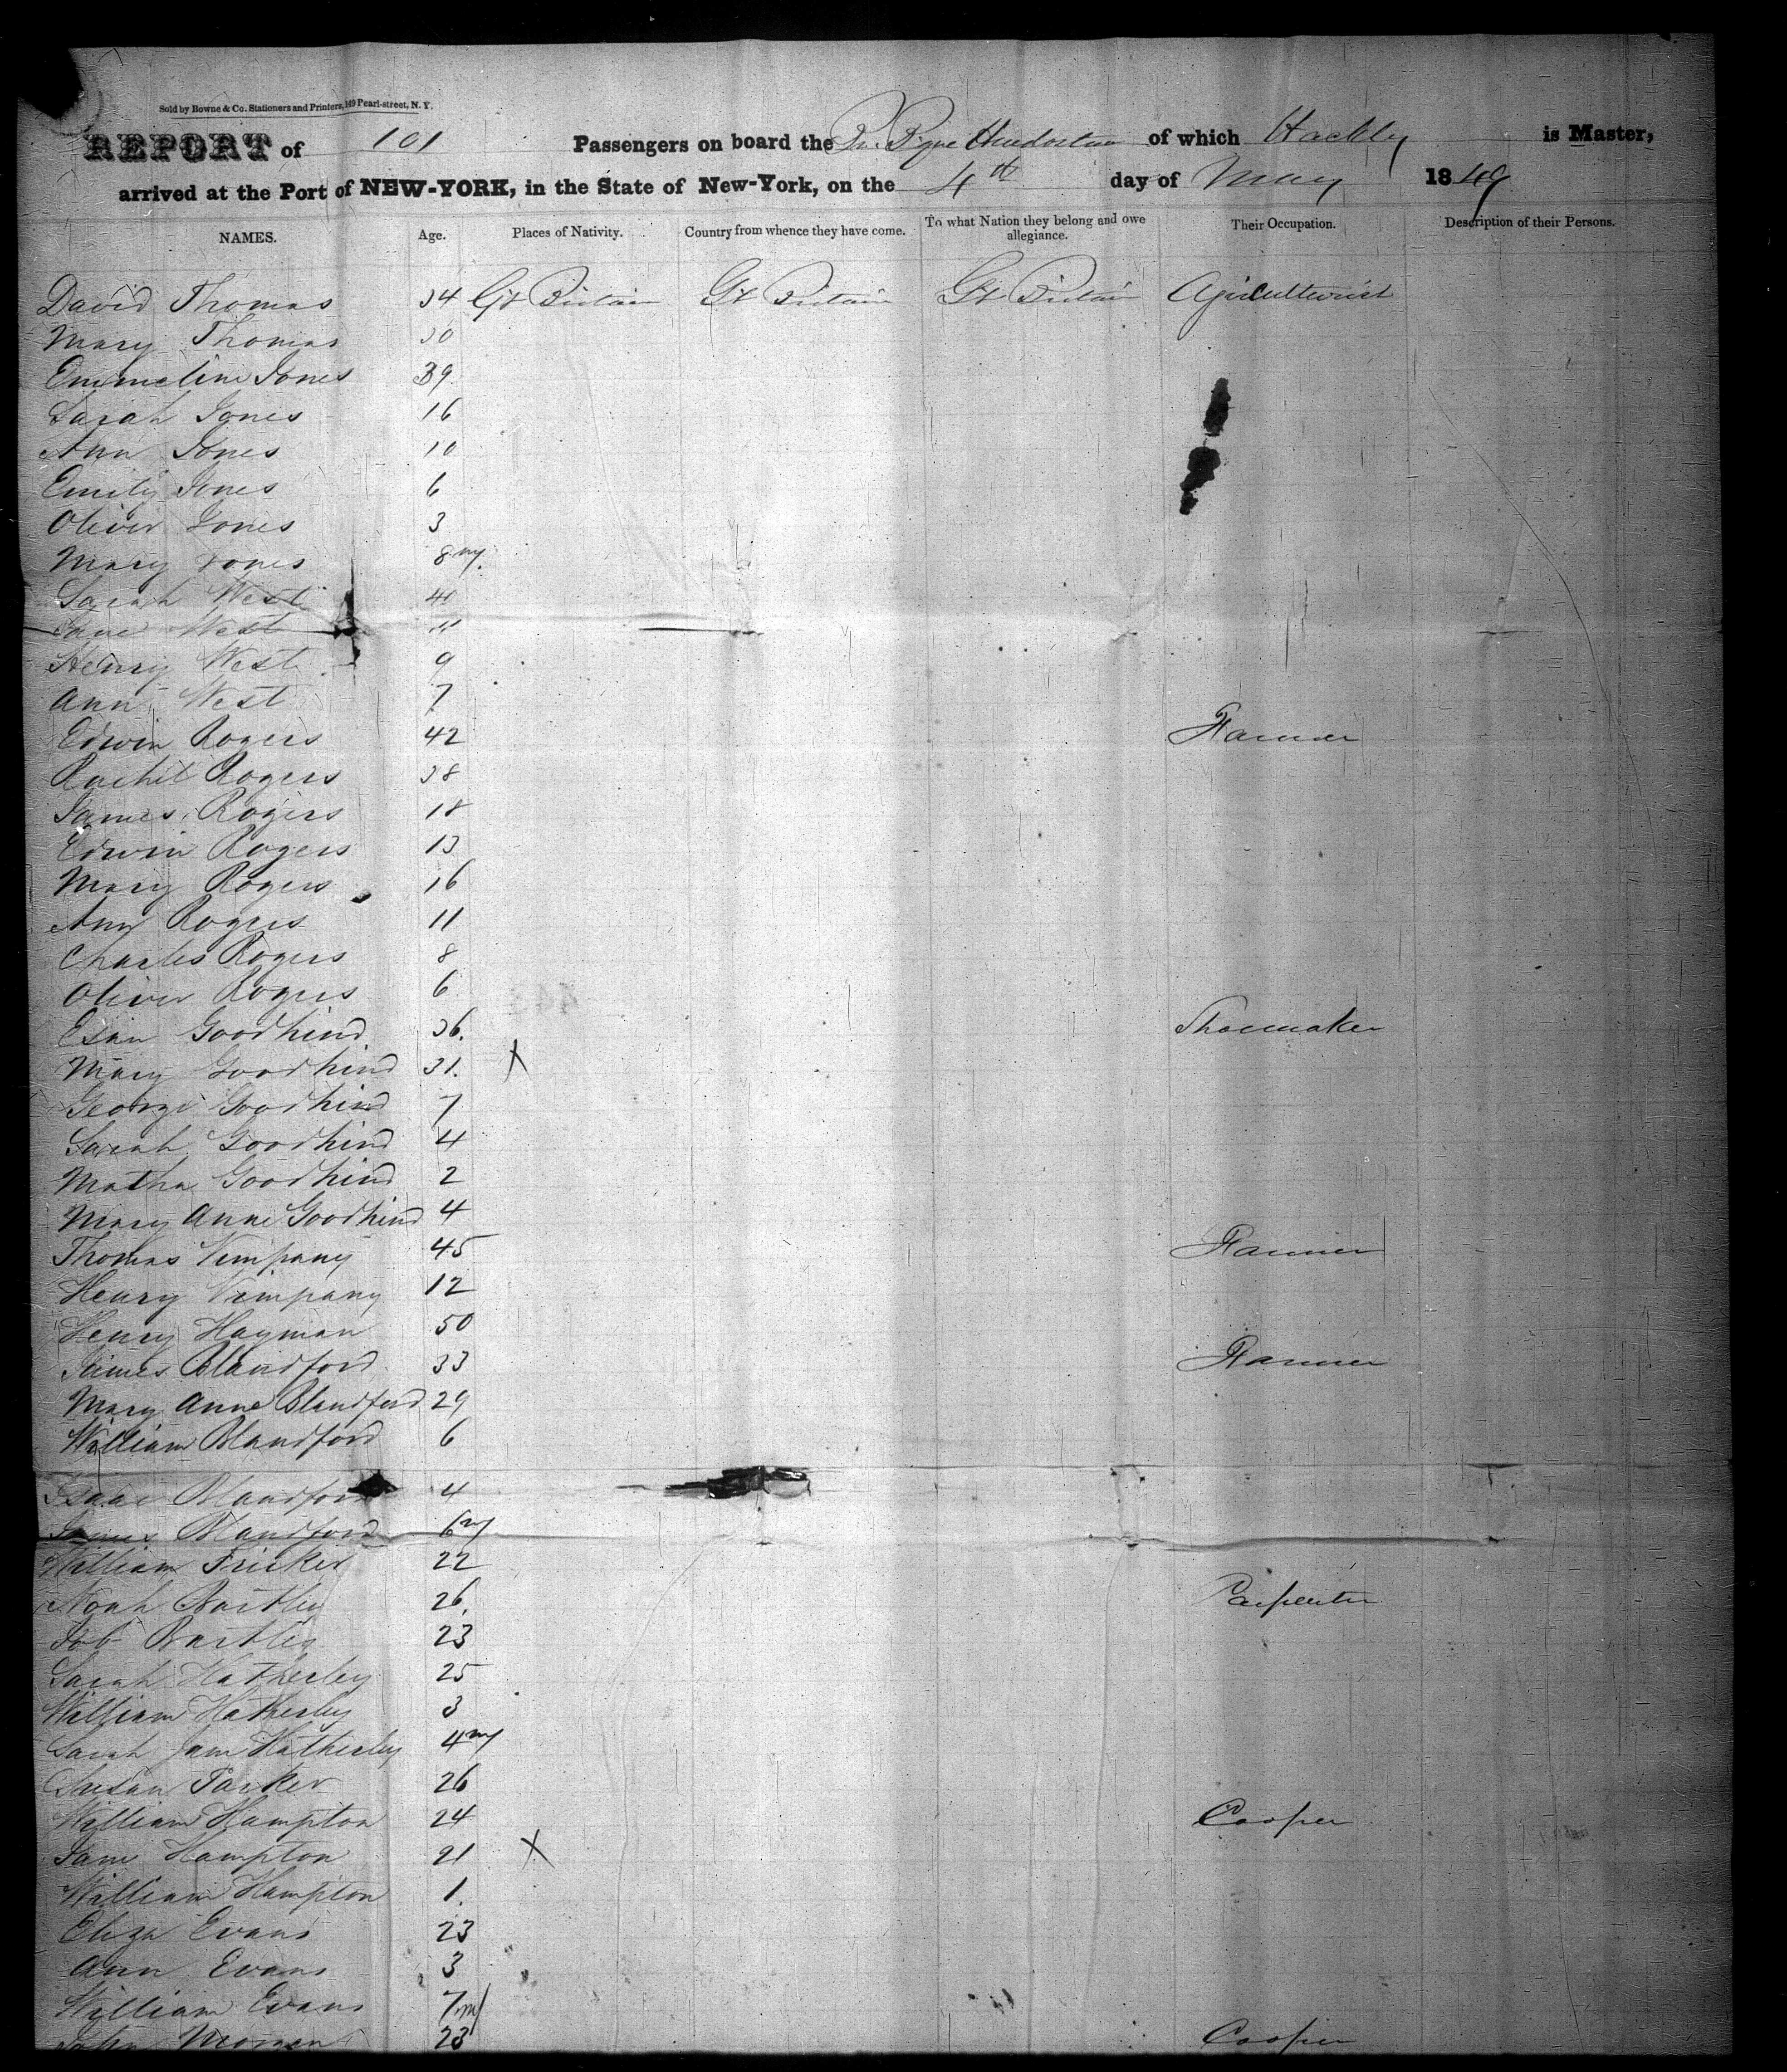 Sold by Bowne & Co. Stationers and Printers, 149 Pearl-street, N. Y.
REPORT of 101 Passengers on board the Br. Bque Hindostan of which Hackley is Master,
arrived at the Port of NEW-YORK, in the State of New-York, on the 4th day of May 1849
NAMES. Age. Places of Nativity. Country from whence they have come. To what Nation they belong and owe allegiance. Their Occupation. Description of their Persons.
David Thomas 34 Gt Britain Gt Britain Gt Britain Agriculturist
Mary Thomas 30
Emmeline Jones 39
Sarah Jones 16
Ann Jones 10
Emily Jones 6
Oliver Jones 3
Mary Jones 8 my.
Sarah West 40
Jane West 11
Henry West 9
Ann West 7
Edwin Rogers 42 Farmer
Rachel Rogers 38
James Rogers 18
Edwin Rogers 13
Mary Rogers 16
Ann Rogers 11
Charles Rogers 8
Oliver Rogers 6
Esau Goodhind 36. Shoemaker
Mary Goodhind 31. X
George Goodhind 7
Sarah Goodhind 4
Matha Goodhind 2
Mary Anne Goodhind 4
Thomas Vimpany 45 Farmer
Henry Vimpany 12
Henry Hayman 50
James Blandford 33 Farmer
Mary Anne Blandford 29
William Blandford 6
Isaac Blandford 4
James Blandford 6 my
William Fricker 22
Noah Bartley 26. Carpenter
Job Bartley 23
Sarah Hatherley 25
William Hatherley 3
Sarah Jane Hatherley 4 my
Susan Parker 26
William Hampton 24 Cooper
Jane Hampton 21 X
William Hampton 1.
Eliza Evans 23
Ann Evans 3
William Evans 7 m/
John 23 Cooper